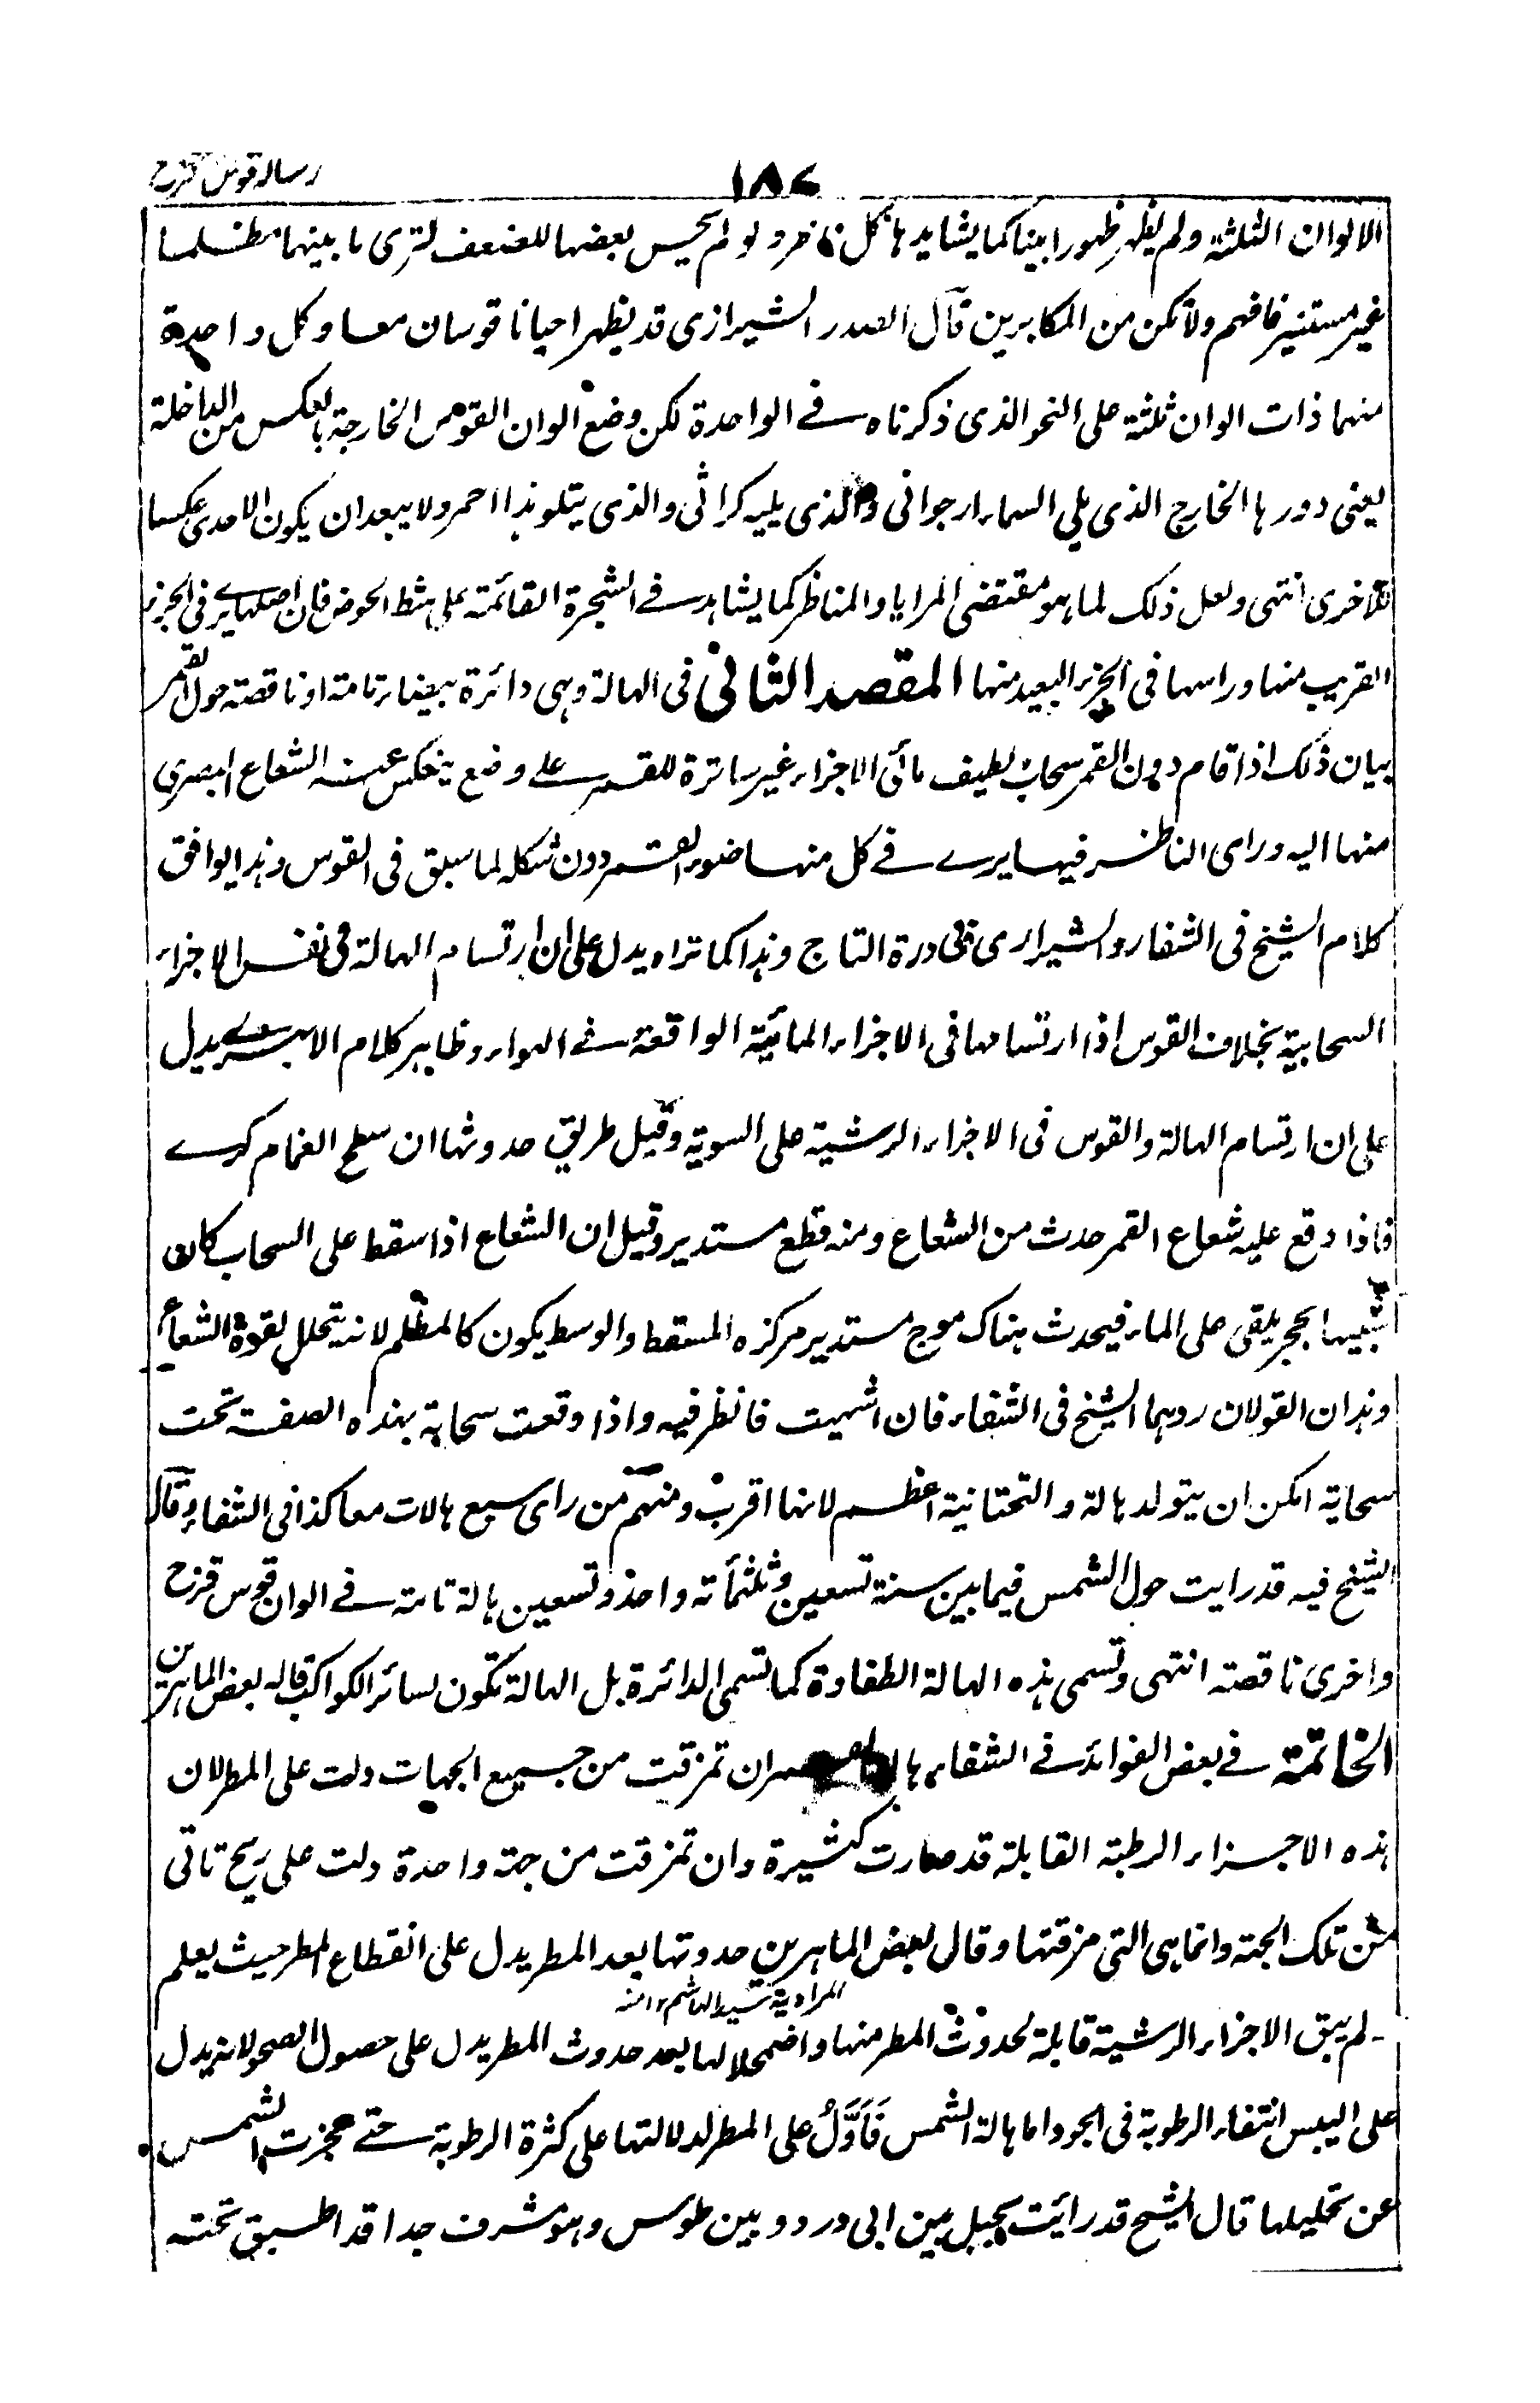 رسالہ قوس قزح
١٨٧
الالوان الثلثة ولم يظهر ظهورا بينا كما يشاهدها كل ناظر ولو لم يحس بعضها للضعف لترى ما بينهما مظلما
غير مستنير فافهم ولا تكن من المكابرين قال الصدر الشيرازى قد يظهر احيانا قوسان معا وكل واحدة
منهما ذات الوان ثلثة على النحو الذى ذكرناه فى الواحدة لكن وضع الوان القوس الخارجة بالعكس من الداخلة
يعنى دورها الخارج الذى يلى السماء ارجوانى والذى يليه كراثى والذى يتلو هذا احمر ولا يبعد ان يكون الاحدى عكسا
للاخرى انتهى ولعل ذلك لما هو مقتضى المرايا والمناظر كما يشاهد فى الشجرة القائمة على شط الحوض فان اصلها يرى فى الجزء
القريب منها وراسها فى الجزء البعيد منها المقصد الثانى فى الهالة وهى دائرة بيضاء تامة او ناقصة حول القمر
بيان ذلك اذا قام دون القمر سحاب لطيف مائى الاجزاء غير ساترة للقمر على وضع ينعكس عنه الشعاع البصرى
منها اليه وراى الناظر فيها يرى فى كل منها ضوء القمر دون شكله لما سبق فى القوس وهذا يوافق
كلام الشيخ فى الشفاء والشيرازى فى درة التاج وهذا كما تراه يدل على ان ارتسام الهالة فى نفس الاجزاء
السحابية بخلاف القوس اذ ارتسامها فى الاجزاء المائية الواقعة فى الهواء وظاهر كلام الابهرى يدل
على ان ارتسام الهالة والقوس فى الاجزاء الرشية على السوية وقيل طريق حدوثها ان سطح الغمام كرى
فاذا وقع عليه شعاع القمر حدث من الشعاع ومنه قطع مستدير وقيل ان الشعاع اذا سقط على السحاب كان
شبيها بحجر يلقى على الماء فيحدث هناك موج مستدير مركزه المسقط والوسط يكون كالمظلم لانه يتحلل لقوة الشعاع
وهذان القولان ردهما الشيخ فى الشفاء فان اشتهيت فانظر فيه واذا وقعت سحابة بهذه الصفة تحت
سحابة امكن ان يتولد هالة والتحتانية اعظم لانها اقرب ومنهم من راى سبع هالات معا كذا فى الشفاء وقال
الشيخ فيه قد رايت حول الشمس فيما بين سنة تسعين وثلثمأته واحد وتسعين هالة تامة فى الوان قوس قزح
واخرى ناقصة انتهى وتسمى هذه الهالة الطفاوة كما تسمى الدائرة بل الهالة تكون لسائر الكواكب قاله بعض الماهرين
الخاتمة فى بعض الفوائد فى الشفاء هالة القمر ان تمزقت من جميع الجهات دلت على المطر لان
هذه الاجزاء الرطبة القابلة قد صارت كثيرة وان تمزقت من جهة واحدة دلت على ريح تاتى
من تلك الجهة وانما هى التى مزقتها وقال بعض الماهرين حدوثها بعد المطر يدل على انقطاع المطر حيث يعلم
المراد به السيد الهاشم ١٢ منه
لم يبق الاجزاء الرشية قابلة لحدوث المطر منها واضمحلالها بعد حدوث المطر يدل على حصول الصحو لانه يدل
على اليبس انتفاء الرطوبة فى الجو واما هالة الشمس فَاَوَّلُ على المطر لدلالتها على كثرة الرطوبة حتى عجزت الشمس
عن تحليلها قال الشيخ قد رائت بجبل بين ابى درد وبين طوس وهو مشرف جدا قد اطبق تحته